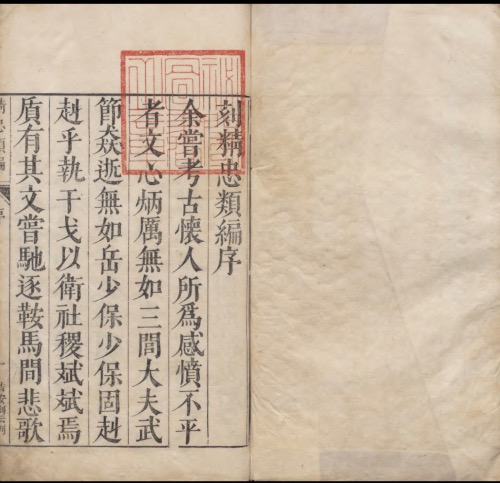 刻精忠類編序
余嘗考古懷人所爲感憤不平
者文心炳厲無如三閭大夫武
節猋逝無如岳少保少保固赳
赳乎執干戈以衛社稷斌斌焉
質有其文嘗馳逐鞍馬間悲歌
精忠類編
序
一